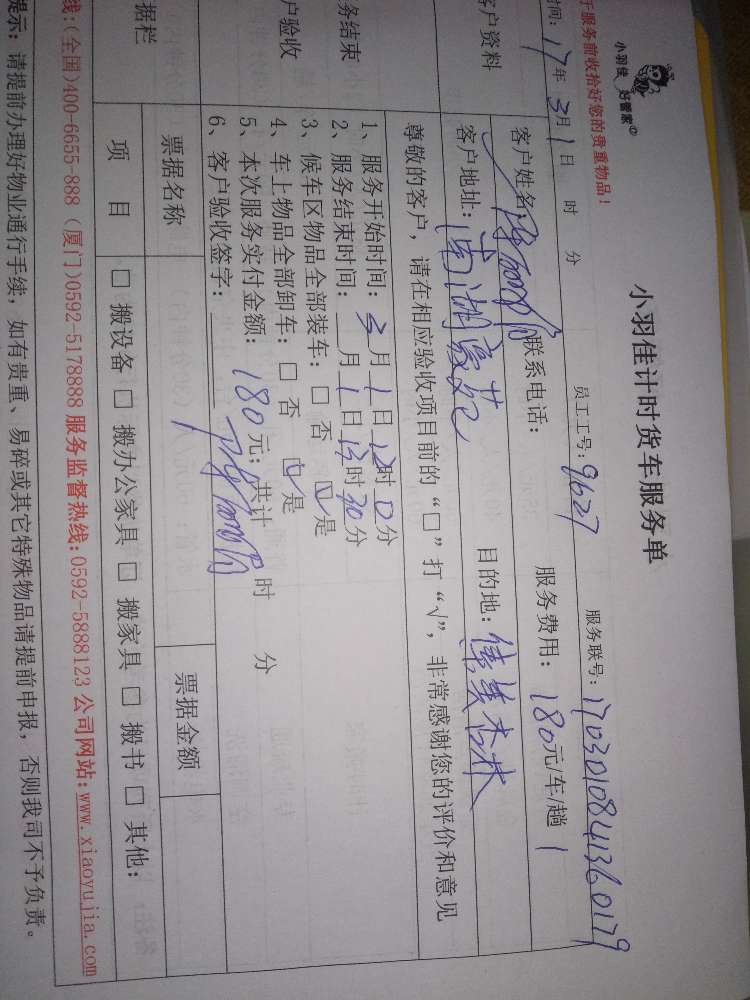 小羽佳 好管家
小羽佳计时货车服务单
于服务前收拾好您的贵重物品！
时间：17年3月1日 时 分 员工工号：9627 服务联号：1703010841360179
客户资料
客户姓名： 联系电话： 服务费用：180元/车/趟 1
客户地址：南湖豪苑 目的地：
尊敬的客户，请在相应验收项目前的“□”打“√”，非常感谢您的评价和意见
务结束
户验收
1、服务开始时间：3月1日12时0分
2、服务结束时间： 月1日13时30分
3、候车区物品全部装车：□否 ☑是
4、车上物品全部卸车：□否 ☑是
5、本次服务实付金额：180元；共计 时 分
6、客户验收签字：
据栏
票据名称 票据金额
项目 □搬设备 □搬办公家具 □搬家具 □搬书 □其他：
线：(全国)400-6655-888 (厦门)0592-5178888 服务监督热线：0592-5888123 公司网站：www.xiaoyujia.com
提示：请提前办理好物业通行手续，如有贵重、易碎或其它特殊物品请提前申报，否则我司不予负责。